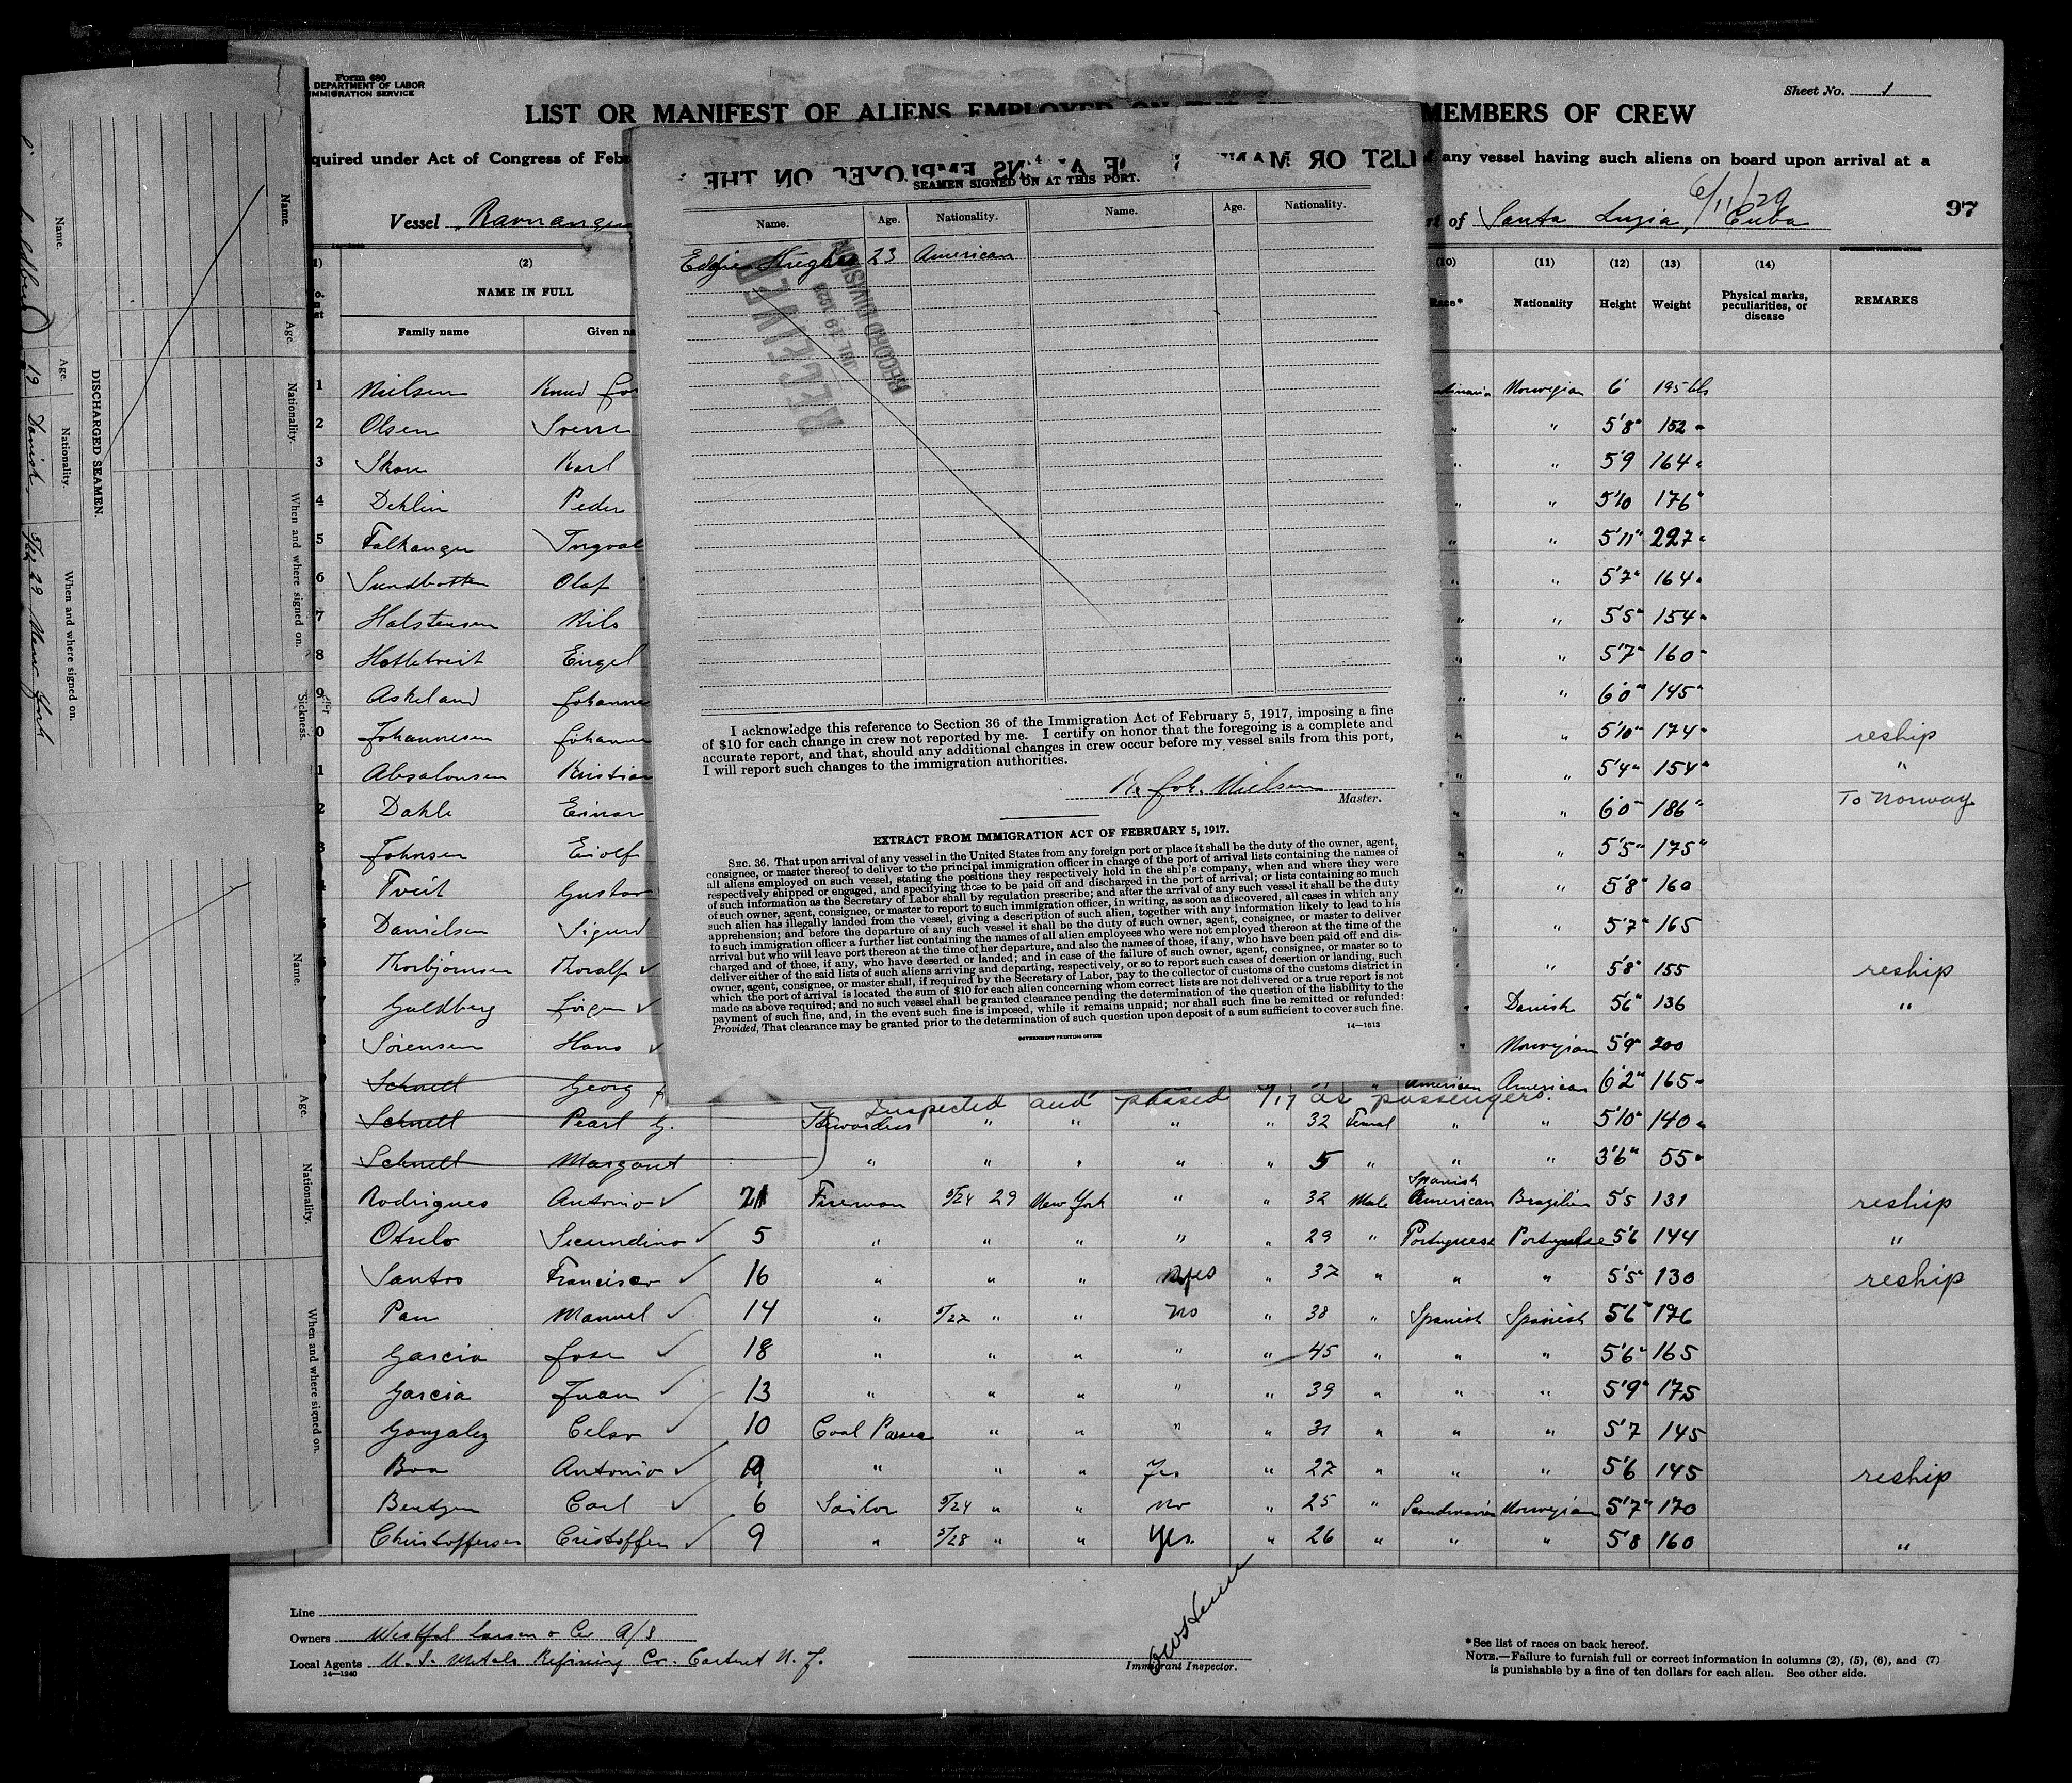 Form 680
DEPARTMENT OF LABOR
IMMIGRATION SERVICE
Sheet No. 1
LIST OR MANIFEST OF ALIENS EMPLOYED ON THE MEMBERS OF CREW
quired under Act of Congress of Feb any vessel having such aliens on board upon arrival at a
Vessel of Santa Luzia, Cuba
6/11/29
97
GOVERNMENT PRINTING OFFICE
(2) (10) (11) (12) (13) (14)
NAME IN FULL Race* Nationality Height Weight Physical marks, peculiarities, or disease REMARKS
Family name Given na
1 Nielsen Knud Norwegian 6' 195 lbs
2 Olsen Sverre " " 5'8" 152 "
3 Skau Karl " " 5'9 164 "
4 Dehlin Peder " " 5'10 176 "
5 Falkanger Ingval " " 5'11" 227 "
6 Sundbotten Olaf " " 5'7" 164 "
7 Halstensen Nils " " 5'5" 154 "
8 Engel " " 5'7" 160 "
9 Askeland Johanne " " 6'0" 145 "
0 Johannesen Johann " " 5'10" 174 " reship
1 Absalonsen Kristian " " 5'4" 154 " "
2 Dahle Einar " 6'0" 186 " To Norway
3 Johnsen Eiolf " " 5'5" 175 "
4 Tveit Gustav " " 5'8" 160
5 Danielsen Sigurd " 5'7" 165
6 Thorbjörnsen Thoralf ✓ " " 5'8" 155 reship
7 Guldberg Jörgen ✓ " Danish 5'6" 136 "
8 Sörensen Hans ✓ " Norwegian 5'9" 200
Schnell Georg " American American 6'2" 165 "
Inspected and passed 7/17 as passengers.
Schnell Pearl G. Stewardess " " " " 32 Femal " " 5'10" 140 "
Schnell Margaret " " " " " 5 " " " 3'6" 55 "
Rodrigues Antonio ✓ 21 Fireman 5/24 29 New York " " 32 Male Spanish American Brazilian 5'5 131 reship
Otulo Secundino ✓ 5 " " " " " 29 " Portuguese Portuguese 5'6 144 "
Santos Francisco ✓ 16 " " " yes " 37 " " " 5'5" 130 reship
Pan Manuel ✓ 14 " 5/27 " " no " 38 " Spanish Spanish 5'6" 176
Garcia Jose ✓ 18 " " " " " 45 " " " 5'6" 165
Garcia Juan ✓ 13 " " " " " 39 " " " 5'9" 175
Gonzalez Celso ✓ 10 Coal Passer " " " " 31 " " " 5'7 145
Boa Antonio ✓ 19 " " " Yes " 27 " " " 5'6 145 reship
Bentzen Carl ✓ 6 Sailor 5/24 " " no " 25 " Scandinavian Norwegian 5'7" 170
Christoffersen Cristoffen ✓ 9 " 5/28 " " Yes. " 26 " " " 5'8 160 "
Line
Owners Westfal Larsen & Co A/S
Local Agents U. S. Metals Refining Co. Carteret N. J.
14—1240
Immigrant Inspector.
*See list of races on back hereof.
NOTE.—Failure to furnish full or correct information in columns (2), (5), (6), and (7)
is punishable by a fine of ten dollars for each alien. See other side.
LIST OR MANI EMPLOYED ON THE
SEAMEN SIGNED ON AT THIS PORT.
Name. Age. Nationality. Name. Age. Nationality.
Hughes 23 American
RECEIVED
JUL 19 1929
RECORD DIVISION
I acknowledge this reference to Section 36 of the Immigration Act of February 5, 1917, imposing a fine
of $10 for each change in crew not reported by me. I certify on honor that the foregoing is a complete and
accurate report, and that, should any additional changes in crew occur before my vessel sails from this port,
I will report such changes to the immigration authorities.
K. Joh. Nielsen
Master.
EXTRACT FROM IMMIGRATION ACT OF FEBRUARY 5, 1917.
SEC. 36. That upon arrival of any vessel in the United States from any foreign port or place it shall be the duty of the owner, agent,
consignee, or master thereof to deliver to the principal immigration officer in charge of the port of arrival lists containing the names of
all aliens employed on such vessel, stating the positions they respectively hold in the ship's company, when and where they were
respectively shipped or engaged, and specifying those to be paid off and discharged in the port of arrival; or lists containing so much
of such information as the Secretary of Labor shall by regulation prescribe; and after the arrival of any such vessel it shall be the duty
of such owner, agent, consignee, or master to report to such immigration officer, in writing, as soon as discovered, all cases in which any
such alien has illegally landed from the vessel, giving a description of such alien, together with any information likely to lead to his
apprehension; and before the departure of any such vessel it shall be the duty of such owner, agent, consignee, or master to deliver
to such immigration officer a further list containing the names of all alien employees who were not employed thereon at the time of the
arrival but who will leave port thereon at the time of her departure, and also the names of those, if any, who have been paid off and dis-
charged and of those, if any, who have deserted or landed; and in case of the failure of such owner, agent, consignee, or master so to
deliver either of the said lists of such aliens arriving and departing, respectively, or so to report such cases of desertion or landing, such
owner, agent, consignee, or master shall, if required by the Secretary of Labor, pay to the collector of customs of the customs district in
which the port of arrival is located the sum of $10 for each alien concerning whom correct lists are not delivered or a true report is not
made as above required; and no such vessel shall be granted clearance pending the determination of the question of the liability to the
payment of such fine, and, in the event such fine is imposed, while it remains unpaid; nor shall such fine be remitted or refunded:
Provided, That clearance may be granted prior to the determination of such question upon deposit of a sum sufficient to cover such fine.
14—1613
GOVERNMENT PRINTING OFFICE
DISCHARGED SEAMEN.
Name. Age. Nationality. When and where signed on.
Guldberg 19 Danish 5/22 29 New York
Name. Age. Nationality. When and where signed on. Sickness.
Name. Age. Nationality. When and where signed on.